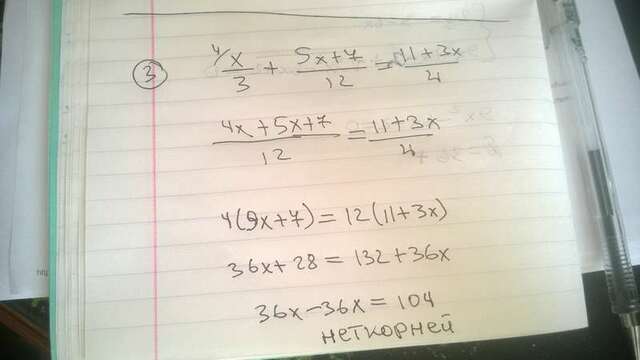 3 4/ x/3 + 5x+7/12 = 11+3x/4
4x+5x+7/12 = 11+3x/4
4(9x+7) = 12(11+3x)
36x+28 = 132+36x
36x-36x = 104
нет корней